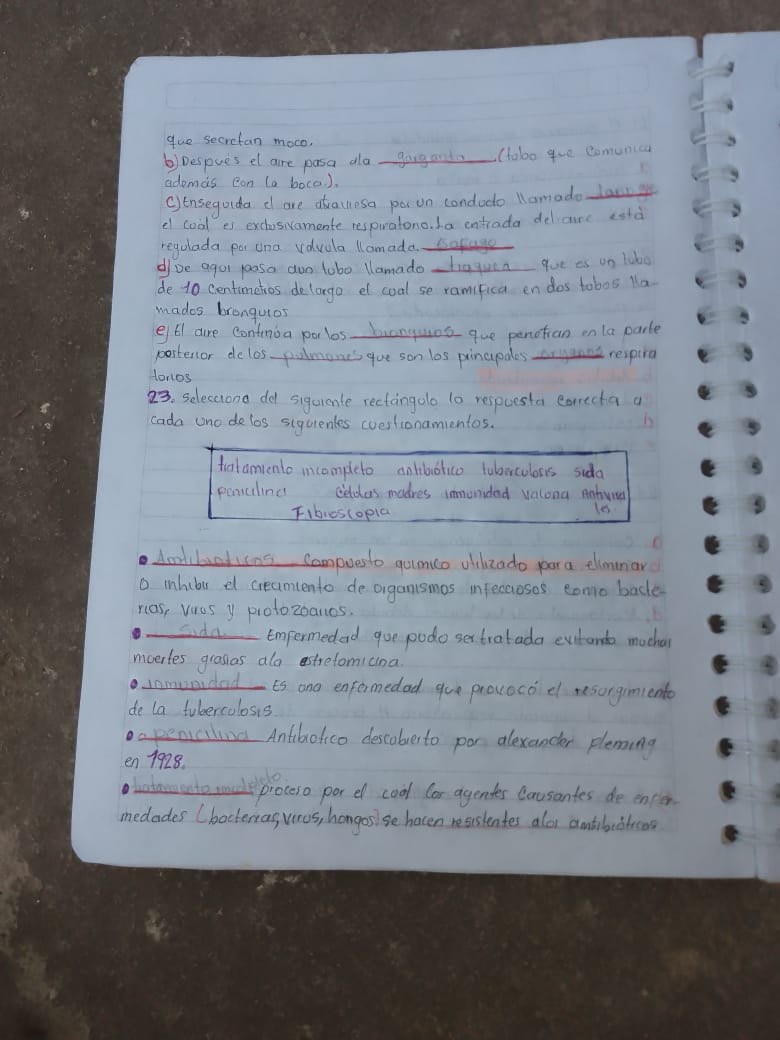 que secretan moco.
b) Después el aire pasa ala garganta (tobo que comunica
además con la boca).
c) Enseguida el aire atraviesa por un conducto llamado laringe
el coál es exclusivamente respiratorio. La entrada del aire está
regulada por una válvula llamada.
d) De aqui pasa aun tobo llamado traquea que es un tubo
de 10 centimetros de largo el coal se ramifica en dos tobos lla-
mados bronquios
e) El aire continúa por los bronquios que penetran en la parte
posterior de los pulmones que son los principales organos respira
torios
23. Selecciona del siguiente rectángulo la respuesta correcta a
cada uno de los siguientes cuestionamientos.
tratamiento incompleto antibiótico tuberculosis sida
penicilina células madres inmunidad vacuna Antivira
les
Fibroscopia
• Antibioticos Compuesto quimico utilizado para eliminar
o inhibir el crecimiento de organismos infecciosos como bacte-
rias, virus y protozoarios.
• Sida Emfermedad que pudo ser tratada evitando muchas
muertes grasias ala estretomicina.
• inmunidad Es una enfermedad que provocó el resurgimiento
de la tuberculosis
• a penicilina Antibiotico descobierto por alexander fleming
en 1928.
• tratamiento incompleto. proceso por el coál los agentes causantes de enfer-
medades (bacterias, virus, hongos) se hacen resistentes alos antibióticos